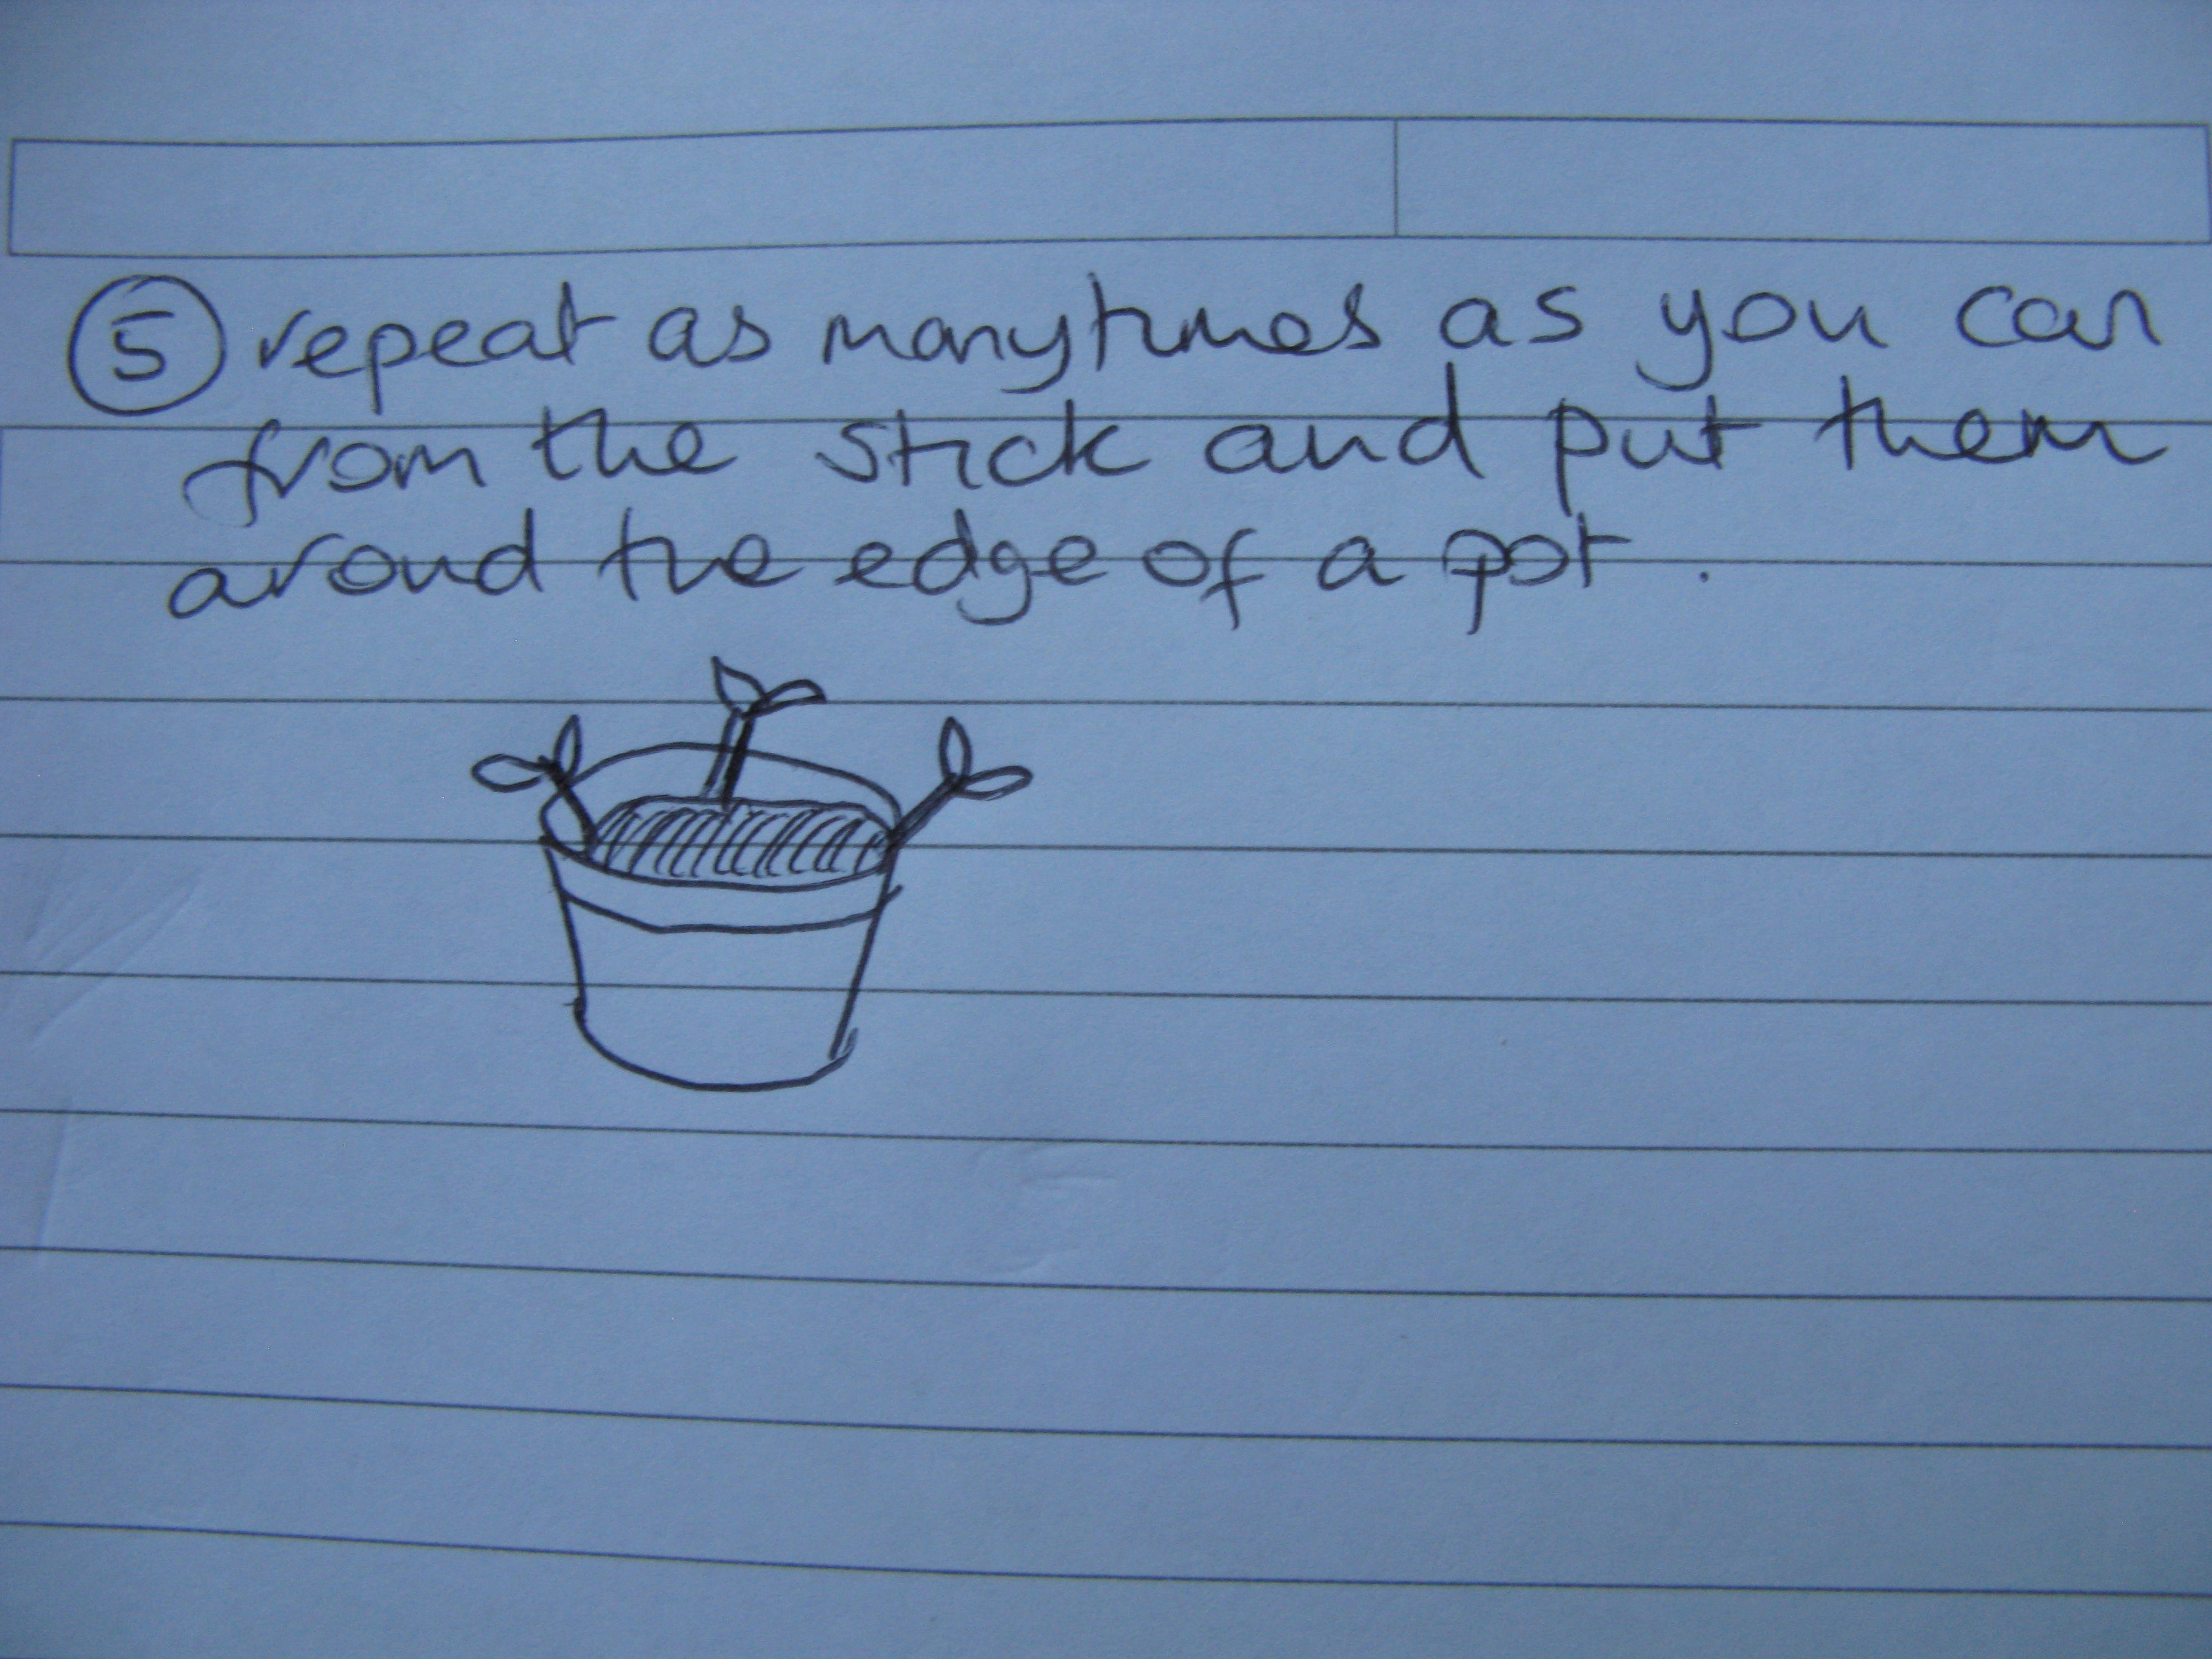 5 repeat as many times as you can
from the stick and put them
around the edge of a pot.